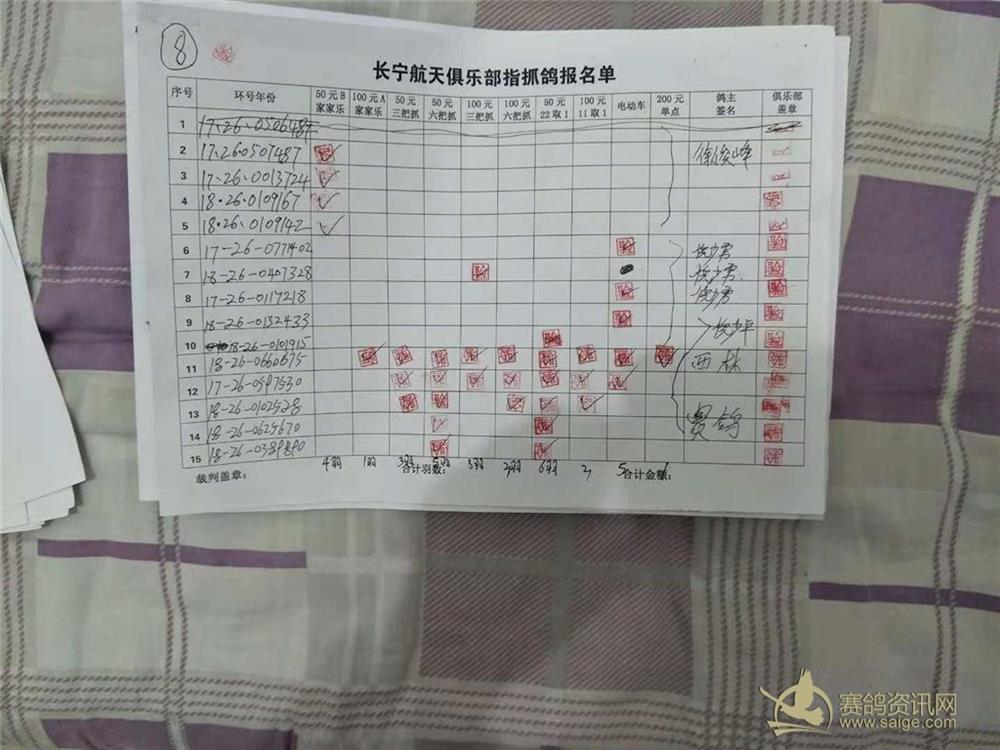 8
长宁航天俱乐部指抓鸽报名单
序号 环号年份 50元B家家乐 100元A家家乐 50元三把抓 50元六把抓 100元三把抓 100元六把抓 50元22取1 100元11取1 电动车 200元单点 鸽主签名 俱乐部盖章
1 17.26.0506487
2 17.26.0507487 徐俊峰
3 17.26.0013724
4 18.26.0109167
5 18.26.0109142
6 17-26-0771402
7 18-26-0407328
8 17-26-0117218
9 18-26-0132433
10 18-26-0101915
11 18-26-0660675 西林
12 17-26-0547530
13 18-26-0102528
14 18-26-0625670 鸽
15 18-26-0389890
4羽 1羽 3羽 5羽 3羽 6羽 5
裁判盖章： 合计羽数： 合计金额：
赛鸽资讯网
www.saige.com